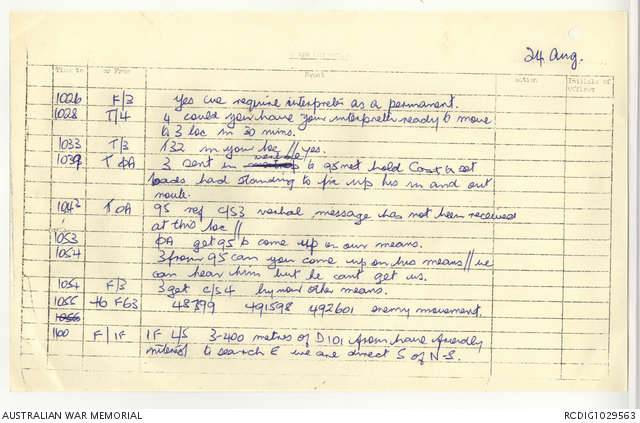 24 Aug.
Time in or From Event Action Initials of Officer
1026 F/3 Yes we require interpreter as a permanent.
1028 T/4 4 could you have your interpreter ready to move
to 3 loc in 30 mins.
1033 T/3 132 in your loc // yes.
1039 T 0A 3 sent in to 95 net hold
loads had standing to fix up his in and out
route.
1042 T 0A 95 ref c/s3 verbal message has not been received
at this loc //
1053 0A get 95 to come up on our means.
1054 3 from 95 can you come up on his means // we
can hear him but he cant get us.
1054 F/3 3 get c/s 4 by now other means.
1055 to F63 48799 491598 492601 enemy movement.
1056
1100 F/1F 1F L/S 3-400 metres of D101 from have friendly
to search E we are direct S of N-S.
AUSTRALIAN WAR MEMORIAL
RCDIG1029563